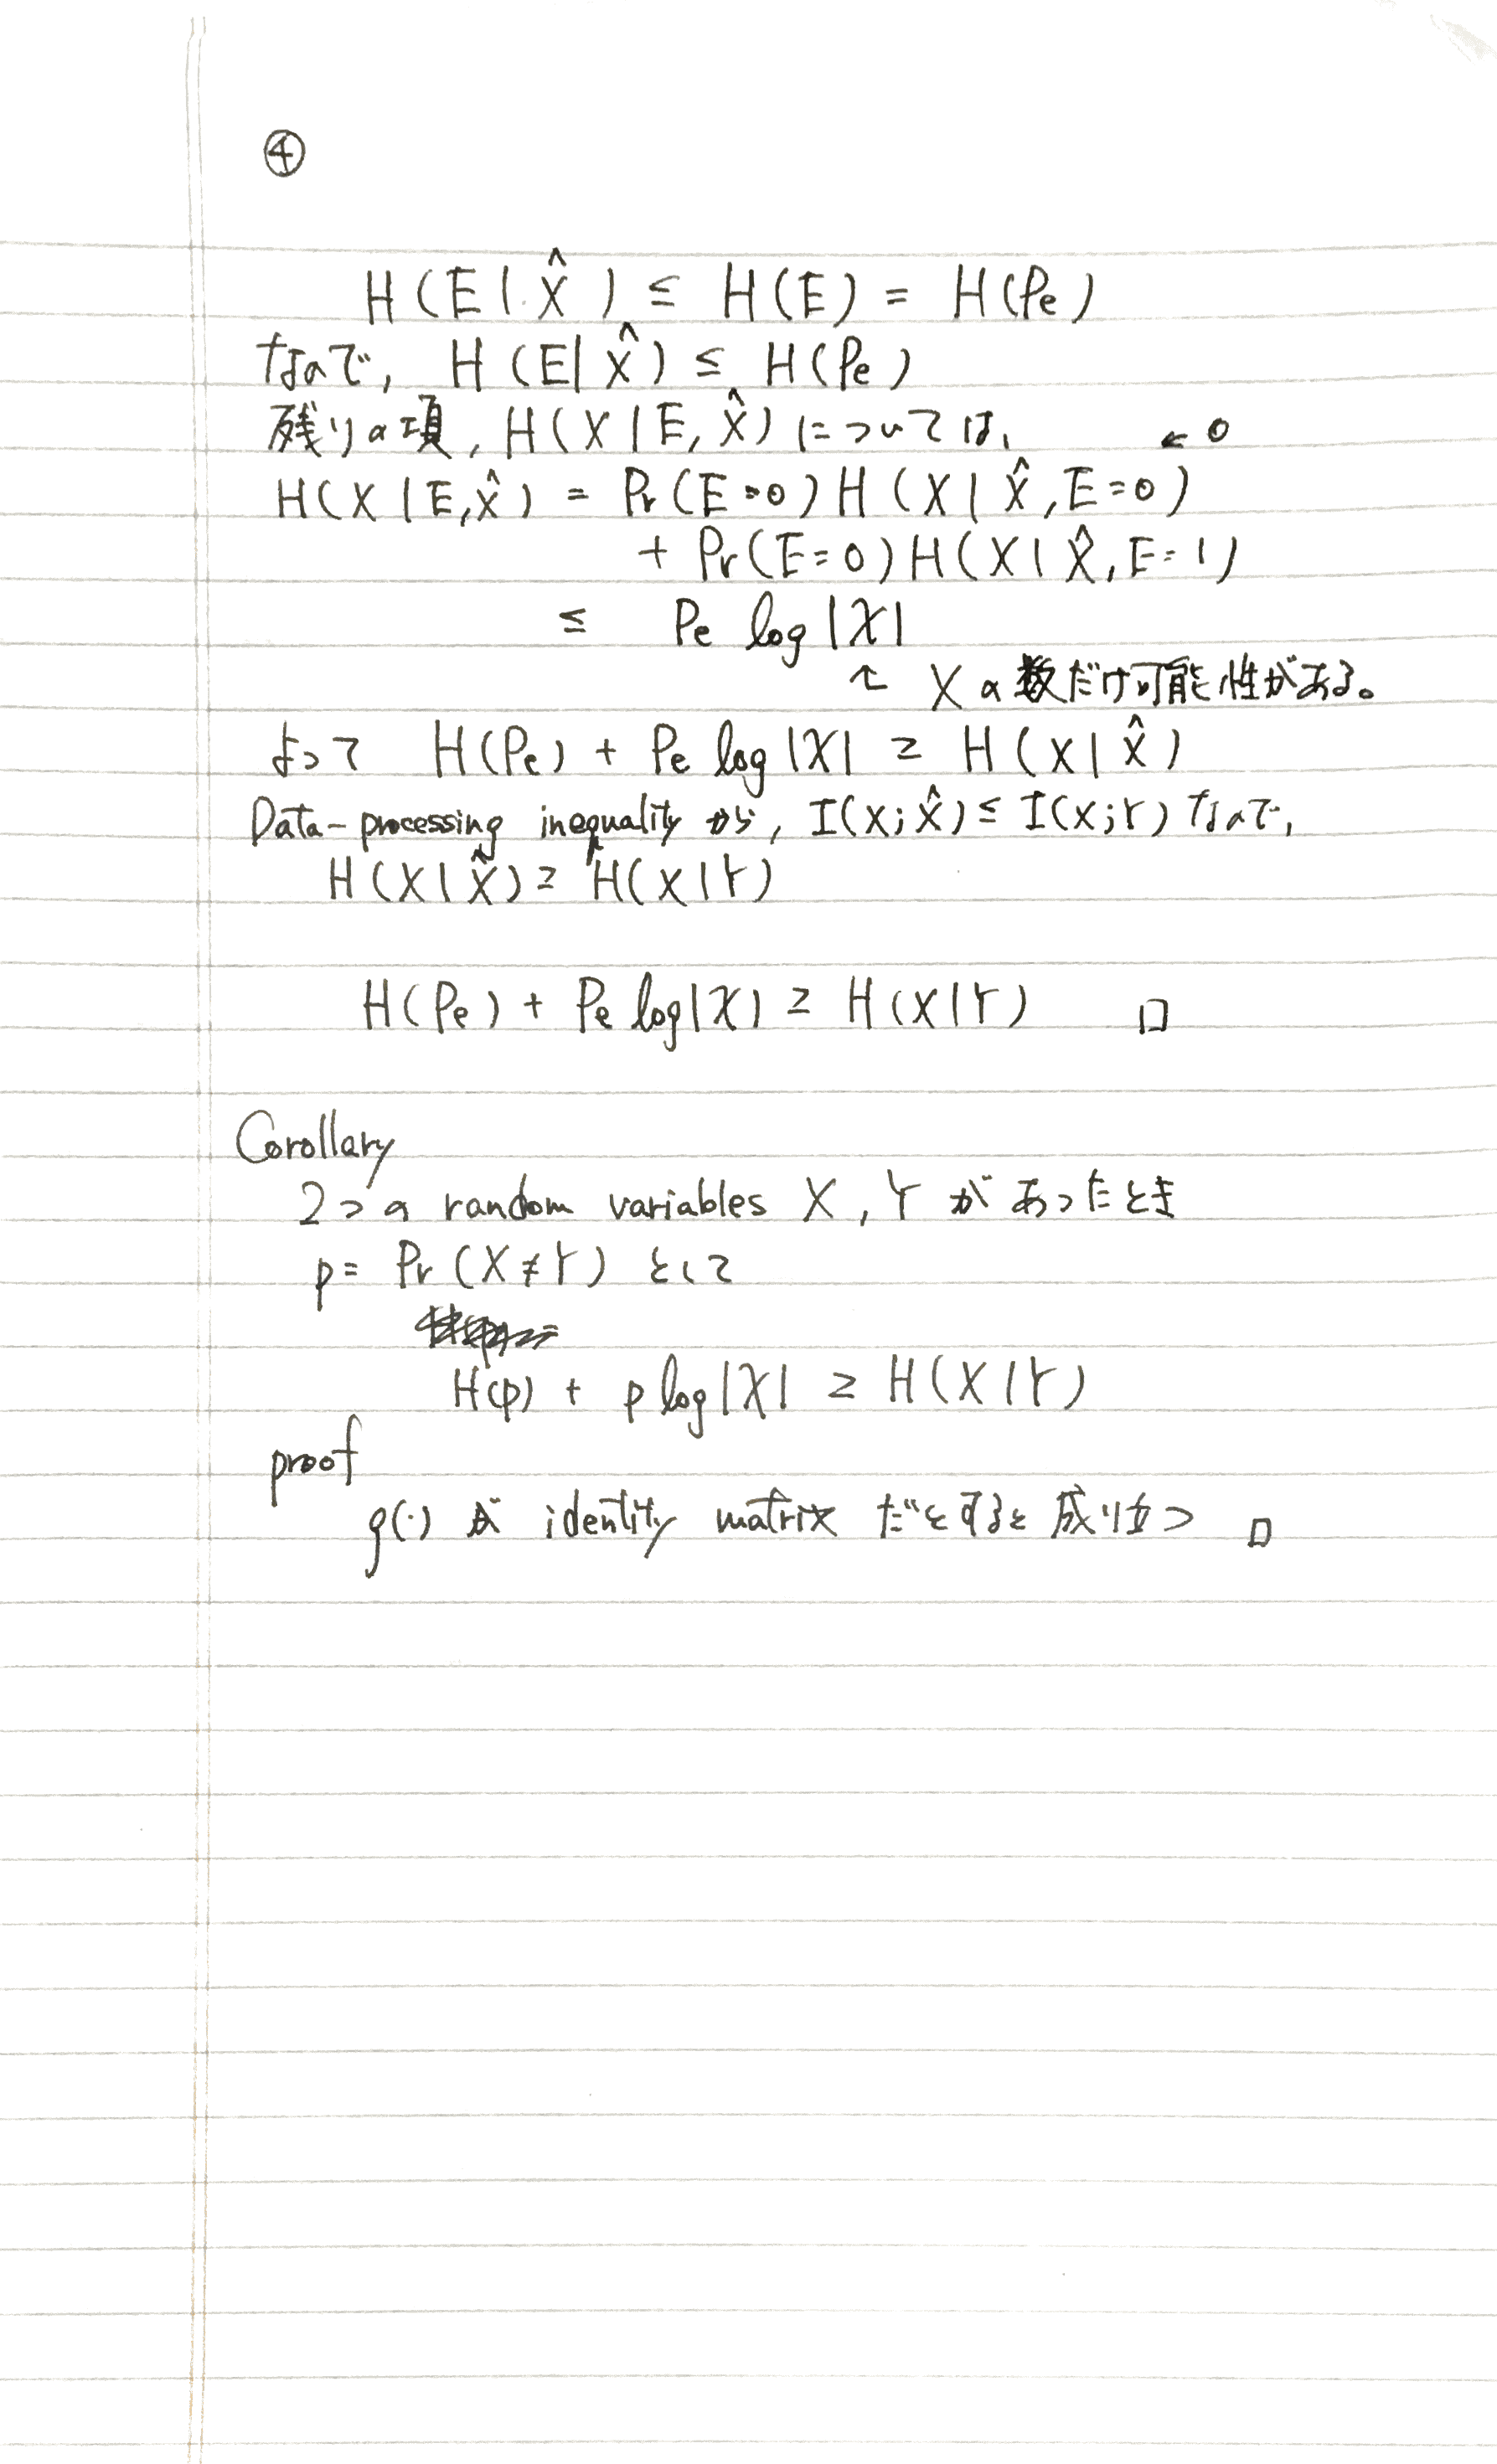 ④
H(E|X̂) ≤ H(E) = H(Pe)
なので, H(E|X̂) ≤ H(Pe)
残りの項, H(X|E,X̂) については, ← 0
H(X|E,X̂) = Pr(E=0)H(X|X̂,E=0)
+ Pr(E=0)H(X|X̂,E=1)
≤ Pe log|χ|
↑ Xの数だけ可能性がある。
よって H(Pe) + Pe log|χ| ≥ H(X|X̂)
Data-processing inequality から, I(X;X̂) ≤ I(X;Y) なので,
H(X|X̂) ≥ H(X|Y)
H(Pe) + Pe log|χ| ≥ H(X|Y) □
Corollary
2つの random variables X, Y があったとき
p = Pr(X≠Y) として
H(p) + p log|χ| ≥ H(X|Y)
proof
g(・) が identity matrix だとすると成り立つ □